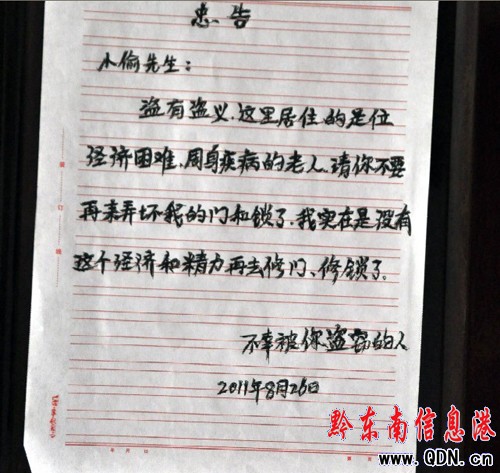 忠告
小偷先生：
盗有盗义，这里居住的是位
经济困难，周身疾病的老人，请你不要
再来弄坏我的门和锁了，我实在是没有
这个经济和精力再去修门、修锁了。
不幸被你盗窃的人
2011年8月26日
黔东南信息港
www.QDN.cn